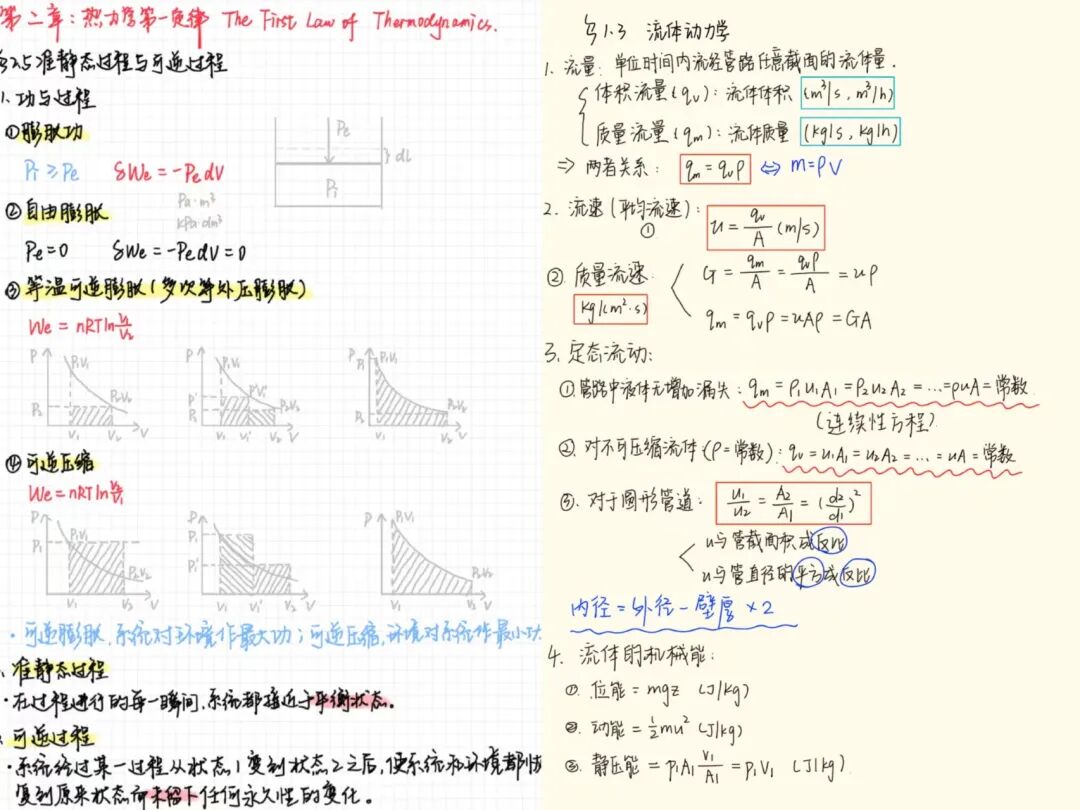 第二章:热力学第一定律 The First Law of Thermodynamics.
§2.5 准静态过程与可逆过程
1. 功与过程
①膨胀功
Pi ≥ Pe δWe = -PedV
Pa·m³
kPa·dm³
Pe
dl
Pi
②自由膨胀
Pe=0 δWe=-PedV=0
③等温可逆膨胀(多次等外压膨胀)
We = nRTln V1/V2
P P1V1 P2V2 P2 V1 V2 V
P P1V1 P'V' P2V2 P' P2 V1 V' V2 V
P P1 P1V1 P2V2 P2 V1 V2 V
④可逆压缩
We=nRTln
P P1V1 P1 P2V2 V1 V2 V
P V1 V1' V2 V
P P1V1 P2V2 V1 V2 V
·可逆膨胀,系统对环境作最大功;可逆压缩,环境对系统作最小功
准静态过程
·在过程进行的每一瞬间,系统都接近于平衡状态。
可逆过程
·系统经过某一过程从状态1变到状态2之后,使系统和环境都
复到原来状态而未留下任何永久性的变化。
§1.3 流体动力学
1. 流量: 单位时间内流经管路任意截面的流体量.
体积流量(qv): 流体体积 (m³/s, m³/h)
质量流量(qm): 流体质量 (kg/s, kg/h)
⇒ 两者关系: qm = qvρ ⇔ m=ρV
2. 流速(平均流速): u = qv/A (m/s)
①
② 质量流速 G = qm/A = qvρ/A = uρ
kg/(m²·s)
qm = qvρ = uAρ = GA
3. 定态流动:
①管路中流体无增加漏失: qm = ρ1u1A1 = ρ2u2A2 = ...=ρuA=常数
(连续性方程)
② 对不可压缩流体(ρ=常数): qv = u1A1 = u2A2 = ... = uA = 常数
③. 对于圆形管道: u1/u2 = A2/A1 = (d2/d1)²
u与管截面积成反比
u与管直径的平方成反比
内径 = 外径 - 壁厚 × 2
4. 流体的机械能:
①. 位能 = mgz (J/kg)
②. 动能 = ½mu² (J/kg)
③. 静压能 = p1A1 V1/A1 = p1V1 (J/kg)